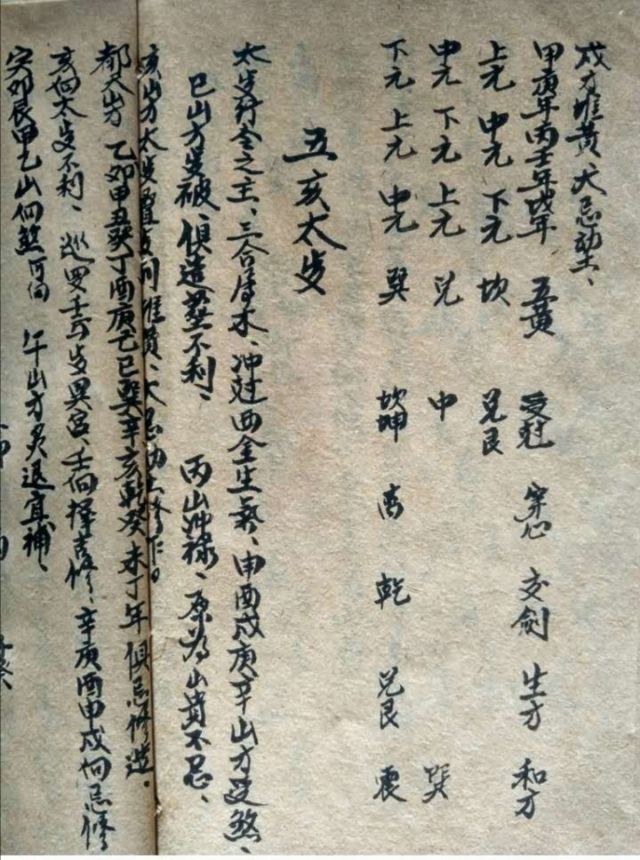 戌方堆黄大忌动土、
甲庚年丙壬年戊年 五黄 受尅 穿心 交剑 生方 和方
上元 中元 下元 坎 兑艮
中元 下元 上元 兑 中 巽
下元 上元 中元 巽 坎坤 离 乾 兑艮 震
五亥太岁
太岁行令之主、三合属木、冲尅酉金生癸、申酉戌庚辛山方受煞、
巳山方岁破、俱造葬不利、 丙山冲禄、原为山贵不忌、
亥山方太岁叠
都天占方 乙卯甲丑癸丁酉庚 巳巽辛亥乾癸未丁年俱忌修造、
亥向太岁不利、巡罗壬 岁異宫、壬向择吉修、辛庚酉申戌向忌修
寅卯艮甲乙山向煞 向 午山方灸退宜补、